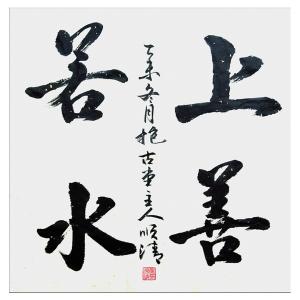 上善
若水
丁未冬月抱古堂主人顺清